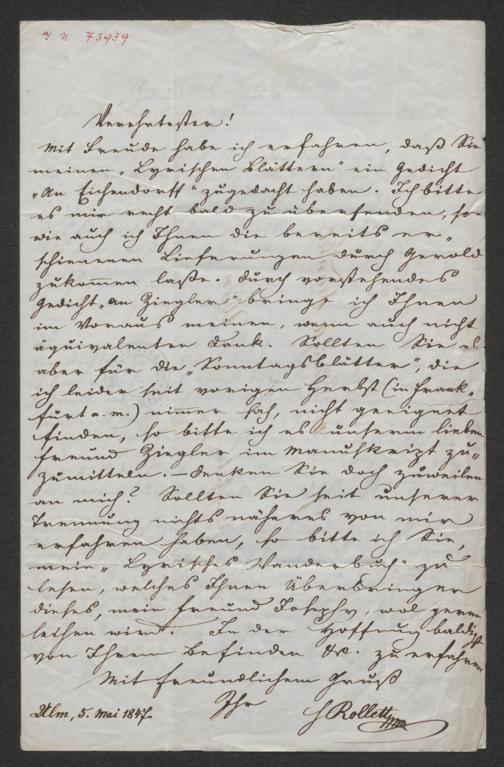 I N 73939
Verehrtester!
Mit Freude habe ich erfahren, daß Sie
meinen „Lyrischen Blättern" ein Gedicht
„An Eichendorff" zugedacht haben. Ich bitte
es mir recht bald zu übersenden, so
wie auch ich Ihnen die bereits er„
schienenen Lieferungen durch Gerold
zukommen laße. Durch vorstehendes
Gedicht „an Ziegler" bringe ich Ihnen
im Voraus meinen, wenn auch nicht
äquivalenten Dank. Sollten Sie es
aber für die „Sonntagsblätter", die
ich leider seit vorigen Herbst (in Frank„
furt a. m.) nimer sah, nicht geeignet
finden, so bitte ich es unserm lieben
Freund Ziegler im Manuskript zu„
zumitteln. Denken Sie doch zuweilen
an mich? Sollten Sie seit unserer
Trennung nichts näheres von mir
erfahren haben, so bitte ich Sie,
mein „Lyrisches Wanderbuch" zu
lesen, welches Ihnen Überbringer
dieses, mein Freund Josephy, wol gerne
leihen wird. In der Hoffnung baldigst
von Ihrem Befinden &c. zu erfahren
Mit freundlichem Gruß
Ihr
Ulm, 5. Mai 1847. H Rollett